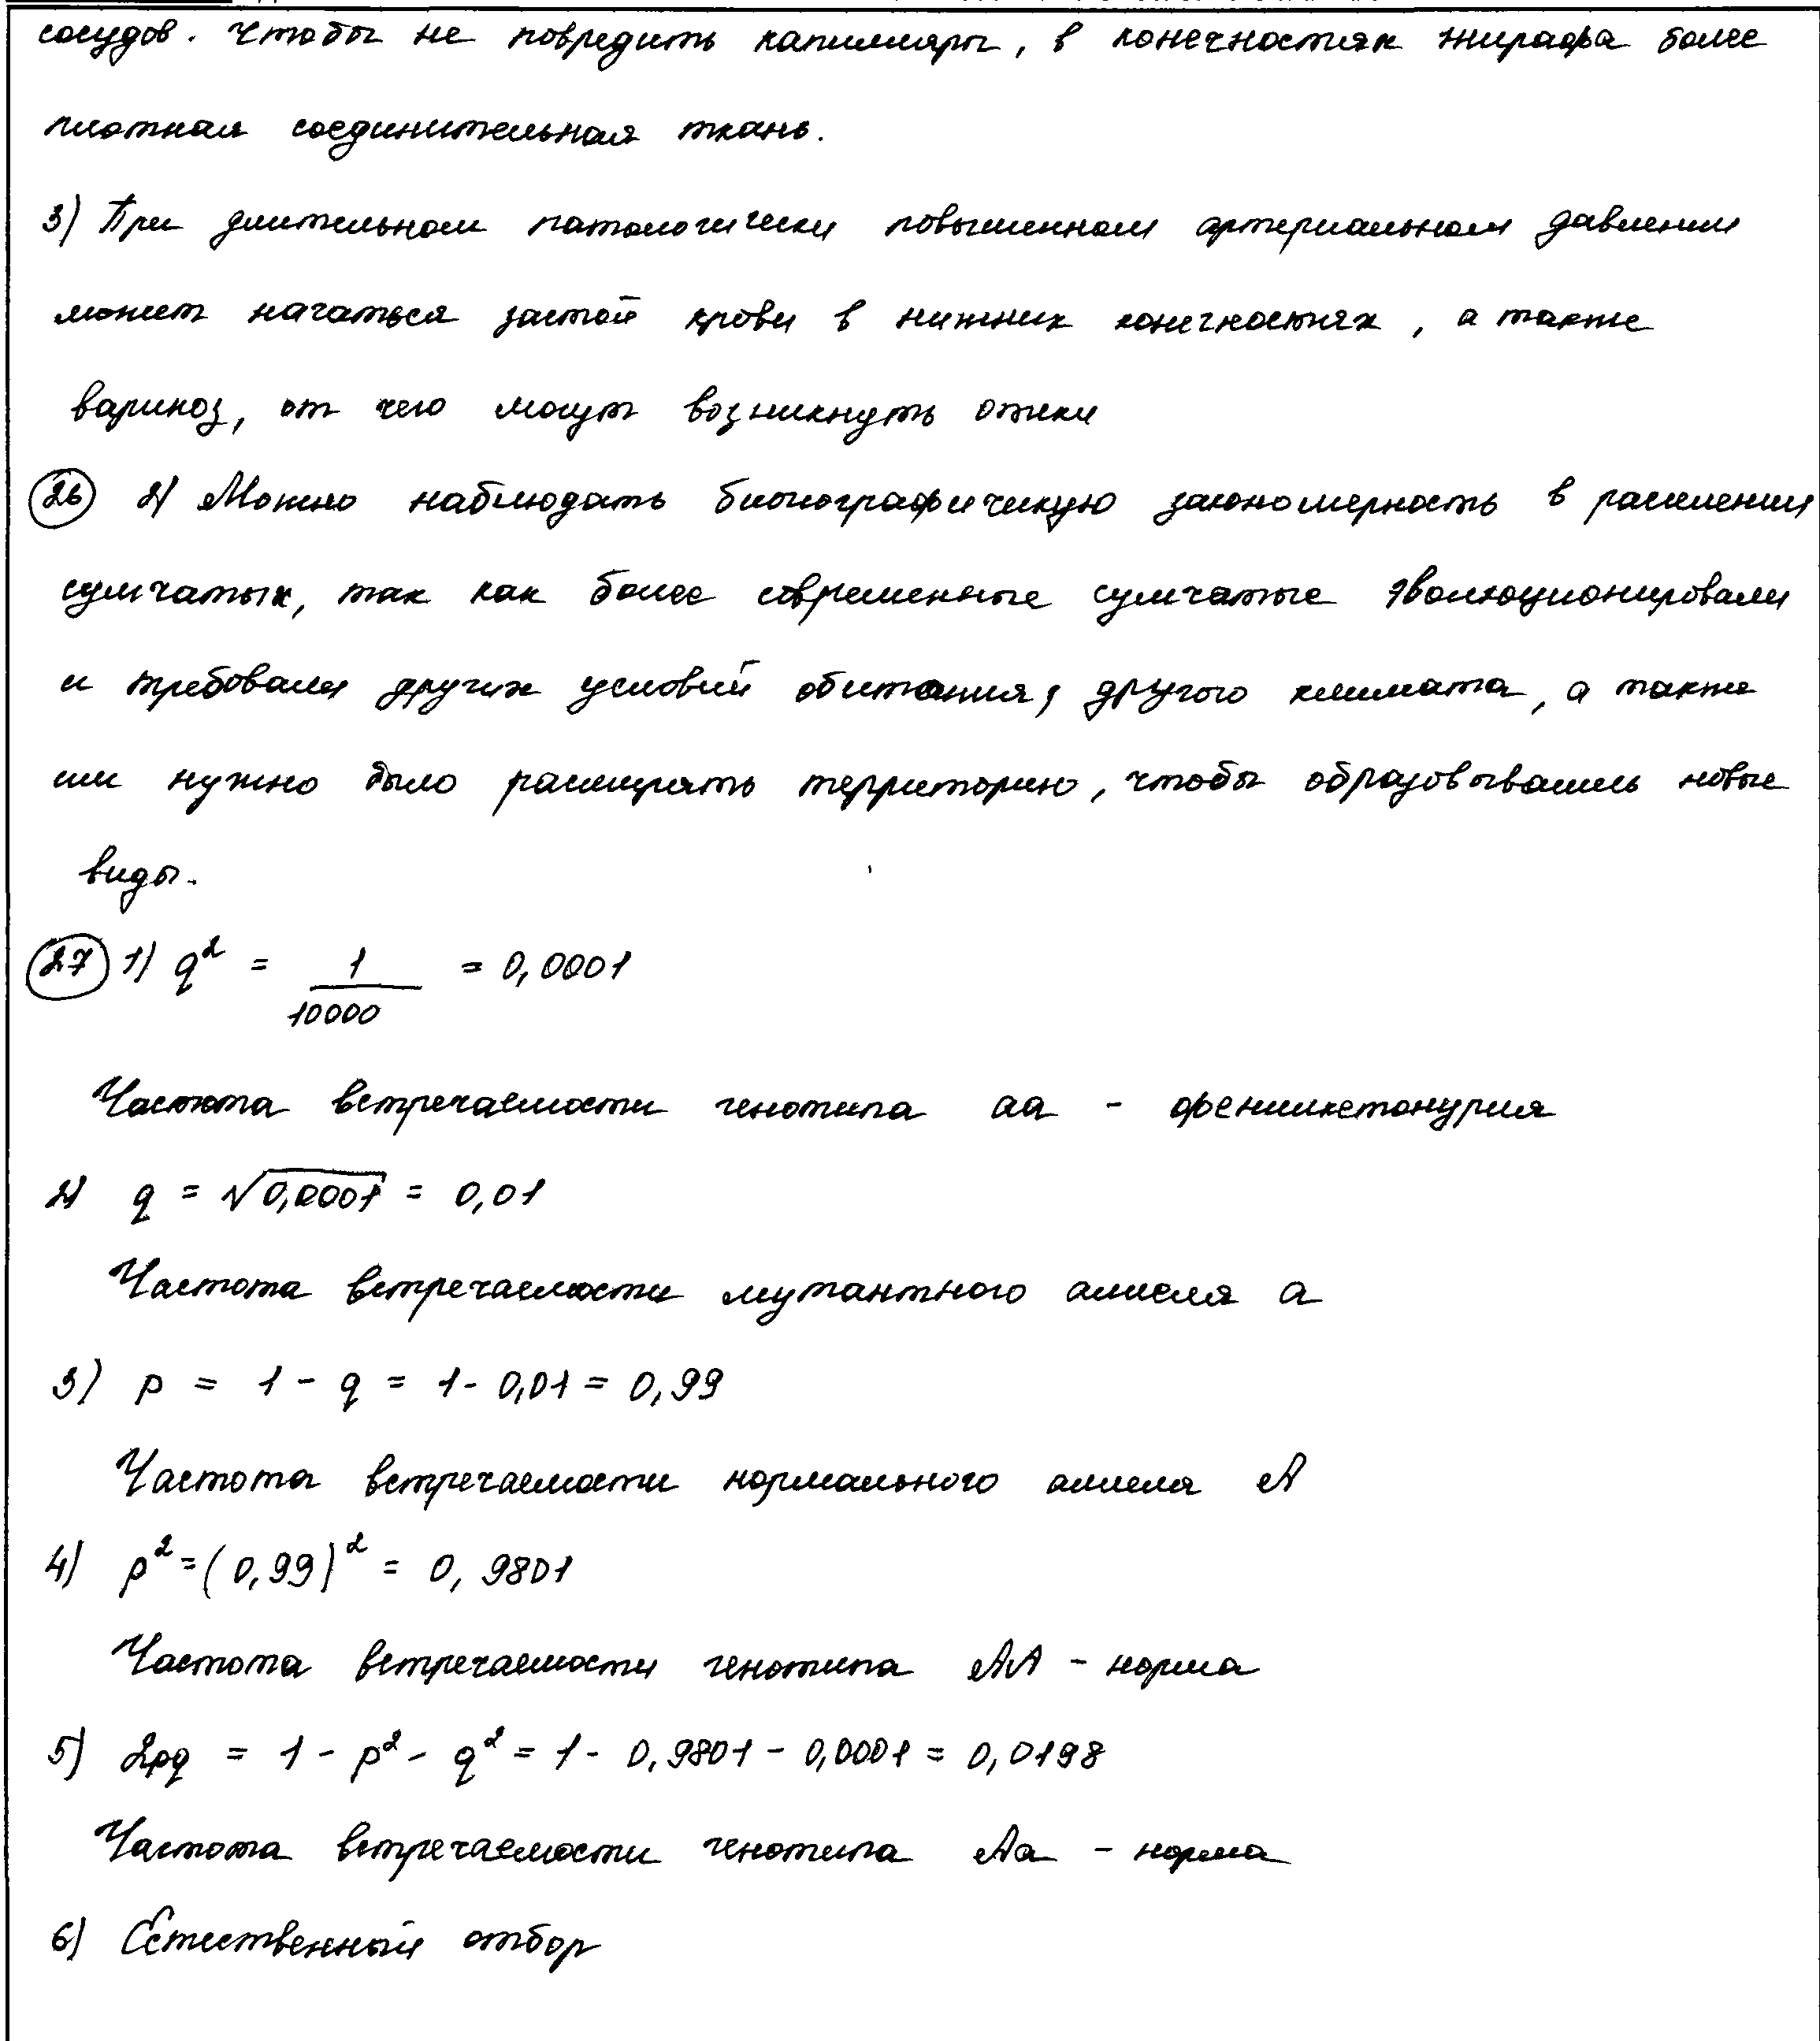 сосудов. Чтобы не повредить капилляры, в конечностях жирафа более
плотная соединительная ткань.
3) При длительном патологически повышенном артериальном давлении
может начаться застой крови в нижних конечностях, а также
варикоз, от чего могут возникнуть отеки
26 2) Можно наблюдать биогеографическую закономерность в расселении
сумчатых, так как более современные сумчатые эволюционировали
и требовали других условий обитания, другого климата, а также
им нужно было расширять территорию, чтобы образовывались новые
виды.
27 1) q² = 1/10000 = 0,0001
Частота встречаемости генотипа аа - фенилкетонурия
2) q = √0,0001 = 0,01
Частота встречаемости мутантного аллеля а
3) p = 1 - q = 1 - 0,01 = 0,99
Частота встречаемости нормального аллеля А
4) p² = (0,99)² = 0,9801
Частота встречаемости генотипа АА - норма
5) 2pq = 1 - p² - q² = 1 - 0,9801 - 0,0001 = 0,0198
Частота встречаемости генотипа Аа - норма
6) Естественный отбор